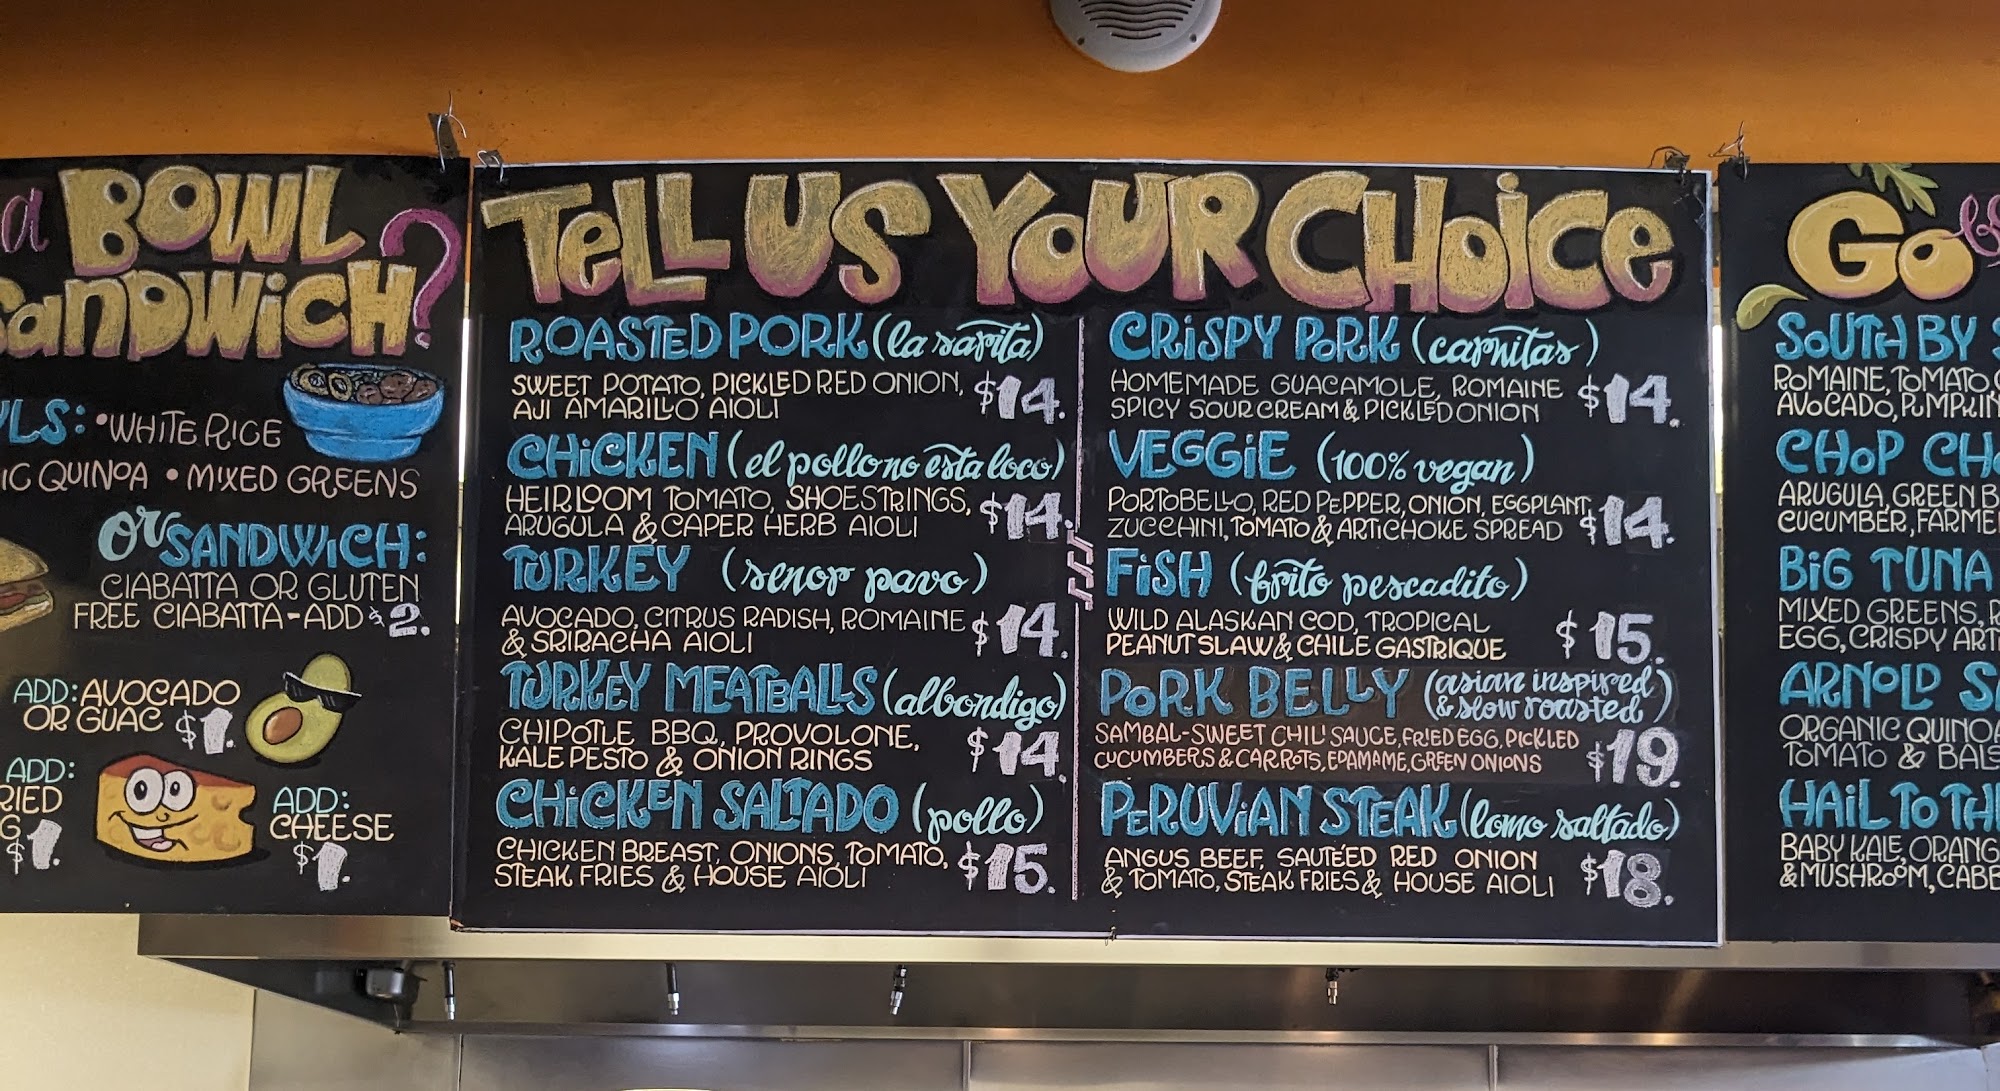 a BOWL
SANDWICH?
WHITE RICE
QUINOA • MIXED GREENS
or SANDWICH:
CIABATTA OR GLUTEN
FREE CIABATTA-ADD $2.
ADD: AVOCADO
OR GUAC $1.
ADD:
$1.
ADD:
CHEESE
$1.
TELL US YOUR CHOICE
ROASTED PORK (la sarita)
SWEET POTATO, PICKLED RED ONION,
AJI AMARILLO AIOLI
$14.
CHICKEN (el pollo no esta loco)
HEIRLOOM TOMATO, SHOESTRINGS,
ARUGULA & CAPER HERB AIOLI
$14.
TURKEY (senor pavo)
AVOCADO, CITRUS RADISH, ROMAINE
& SRIRACHA AIOLI
$14.
TURKEY MEATBALLS (albondigo)
CHIPOTLE BBQ, PROVOLONE,
KALE PESTO & ONION RINGS
$14.
CHICKEN SALTADO (pollo)
CHICKEN BREAST, ONIONS, TOMATO,
STEAK FRIES & HOUSE AIOLI
$15.
CRISPY PORK (carnitas)
HOMEMADE GUACAMOLE, ROMAINE
SPICY SOUR CREAM & PICKLED ONION
$14.
VEGGIE (100% vegan)
PORTOBELLO, RED PEPPER, ONION, EGGPLANT,
ZUCCHINI, TOMATO & ARTICHOKE SPREAD
$14.
FISH (brito pescadito)
WILD ALASKAN COD, TROPICAL
PEANUT SLAW & CHILE GASTRIQUE
$15.
PORK BELLY (asian inspired
& slow roasted)
SAMBAL-SWEET CHILI SAUCE, FRIED EGG, PICKLED
CUCUMBERS & CARROTS, EDAMAME, GREEN ONIONS
$19.
PERUVIAN STEAK (lomo saltado)
ANGUS BEEF, SAUTÉED RED ONION
& TOMATO, STEAK FRIES & HOUSE AIOLI
$18.
GO
SOUTH BY
ROMAINE, TOMATO,
AVOCADO, PUMPKIN
CHOP
ARUGULA, GREEN
CUCUMBER,
BIG TUNA
MIXED GREENS,
EGG, CRISPY
ARNOLD
ORGANIC QUINOA
TOMATO &
HAIL TO
BABY KALE,
& MUSHROOM,